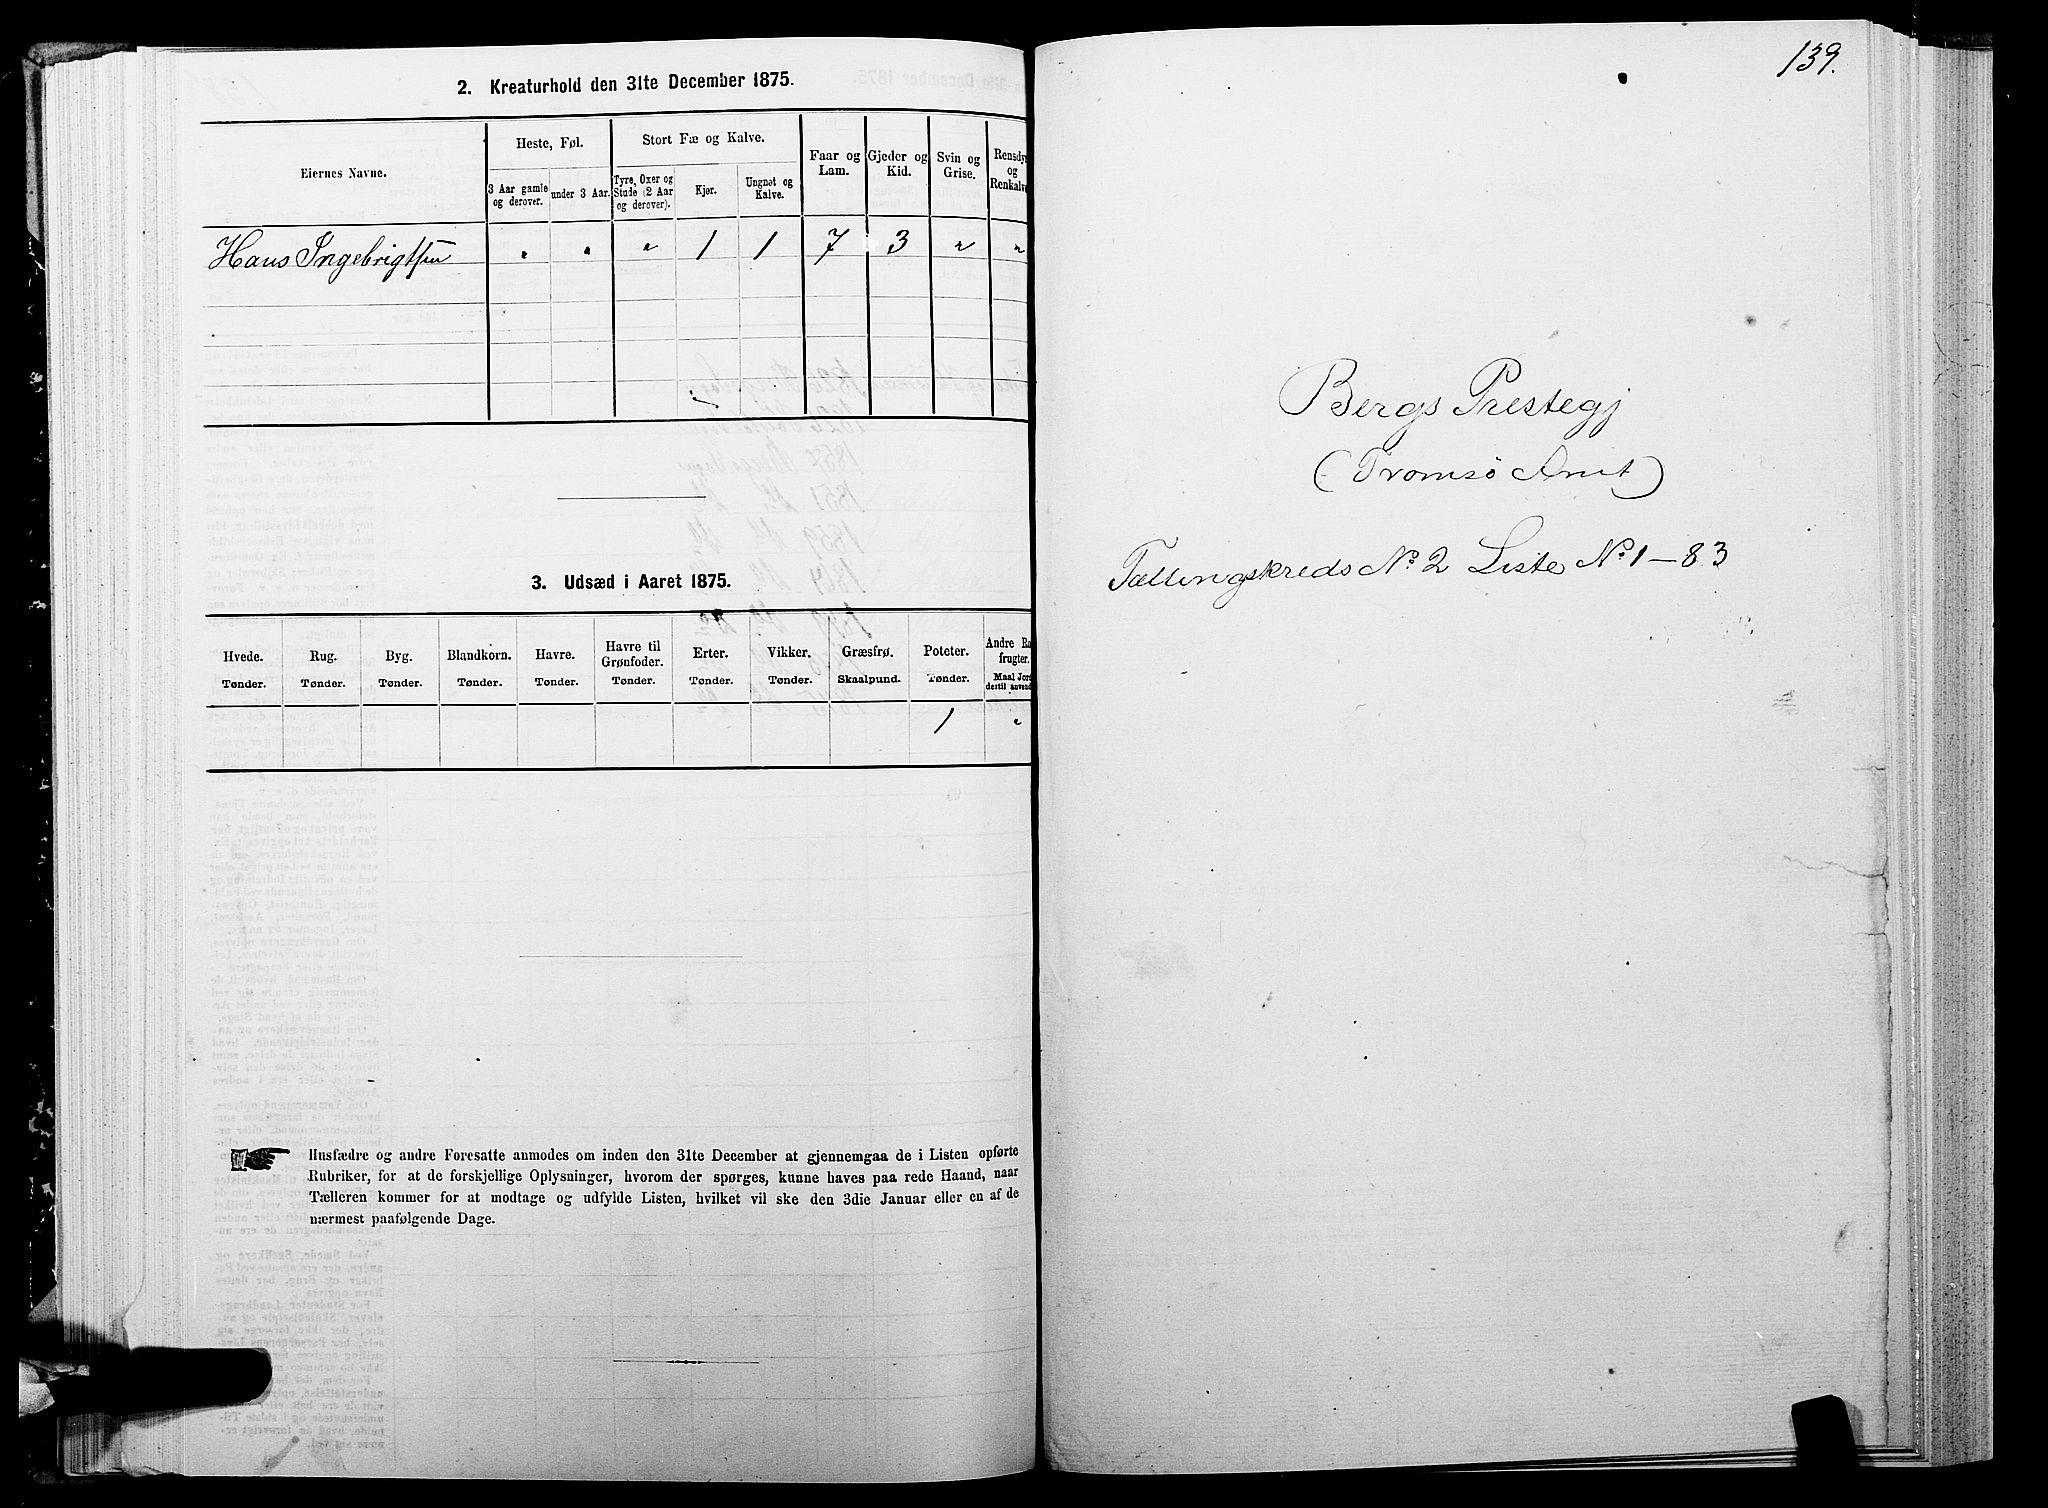 2. Kreaturhold den 31te December 1875.
Eiernes Navne.
Heste, Føl.
Stort Fæ og Kalve.
3 Aar gamle og derover.
under 3 Aar.
Tyre, Oxer og Stude (2 Aar og derover).
Kjør.
Ungnøt og Kalve.
Faar og Lam.
Gjeder og Kid.
Svin og Grise.
Rensdy
og
Renkalve
Hans Ingebrigtsen " " " 1 1 7 3 " "
3. Udsæd i Aaret 1875.
Hvede. Rug. Byg. Blandkorn. Havre. Havre til Grønfoder. Erter. Vikker. Græsfrø. Poteter. Andre Ro
frugter.
Tønder. Tønder. Tønder. Tønder. Tønder. Tønder. Tønder. Tønder. Skaalpund. Tønder. Maal Jord
dertil anvend
1 "
Husfædre og andre Foresatte anmodes om inden den 31te December at gjennemgaa de i Listen opførte
Rubriker, for at de forskjellige Oplysninger, hvorom der spørges, kunne haves paa rede Haand, naar
Tælleren kommer for at modtage og udfylde Listen, hvilket vil ske den 3die Januar eller en af de
nærmest paafølgende Dage.
139.
Bergs Prestegj
(Tromsö Amt)
Tællingskreds No 2 Liste No 1-83